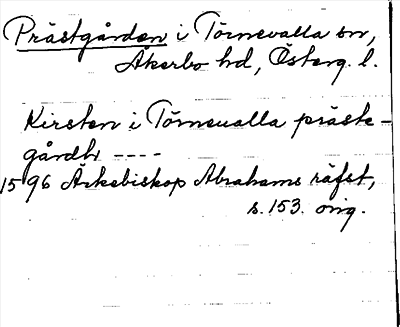 Prästgården i Törnevalla sn,
Åkerbo hd, Österg. l.
Kirsten i Törneualla präste-
gårdh ----
1596 Ärkebiskop Abrahams räfst,
s. 153. orig.